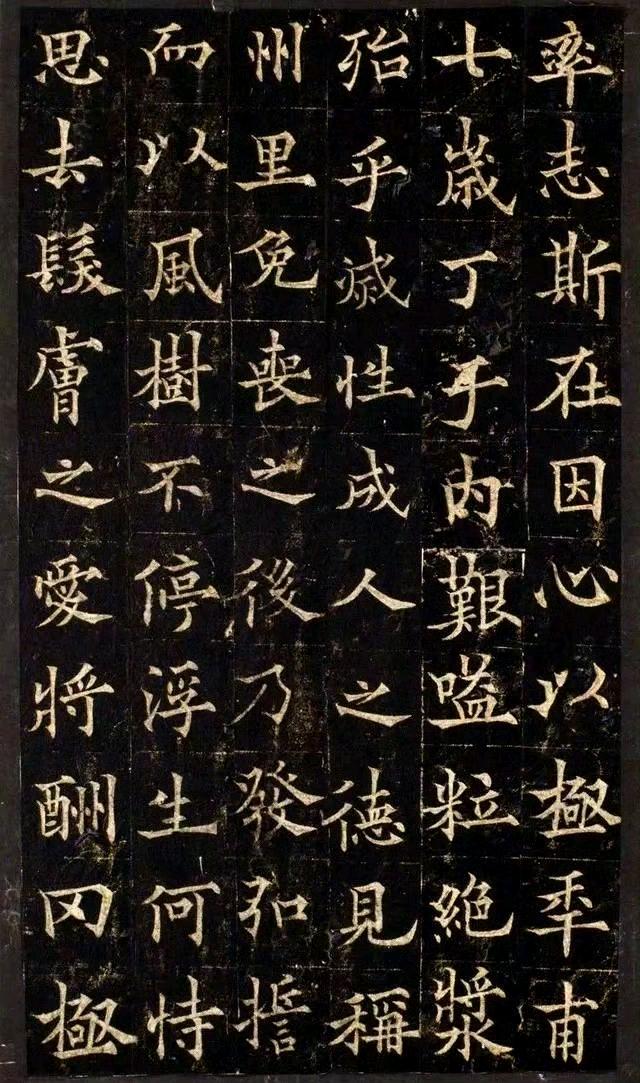 率志斯在因心以極年甫
七歲丁于內艱嗑粒絕漿
殆乎滅性成人之德見稱
州里免喪之後乃發弘誓
而以風樹不停浮生何恃
思去髮膚之愛將酬罔極